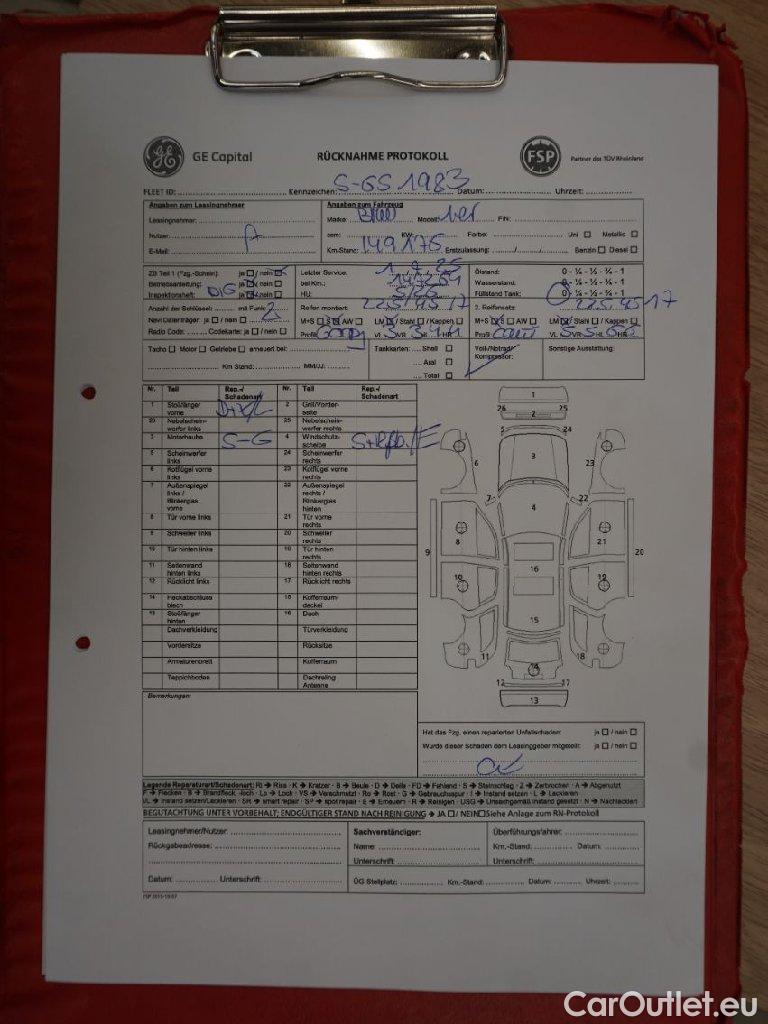 GE Capital RÜCKNAHME PROTOKOLL FSP Partner des TÜV Rheinland
FLEET ID: Kennzeichen: S-GS 1983 Datum: Uhrzeit:
Angaben zum Leasingnehmer
Leasingnehmer:
Nutzer:
E-Mail:
Angaben zum Fahrzeug
Marke: BMW Modell: 1er FIN:
ccm: KW: Farbe: Uni Metallic
Km-Stand: 149175 Erstzulassung: Benzin Diesel
ZB Teil 1 (Fzg.-Schein): ja / nein
Betriebsanleitung: ja / nein
Inspektionsheft: DIG ja / nein
Letzter Service:
bei Km.:
HU:
Ölstand: 0 - ¼ - ½ - ¾ - 1
Wasserstand: 0 - ¼ - ½ - ¾ - 1
Füllstand Tank: 0 - ¼ - ½ - ¾ - 1
Anzahl der Schlüssel: mit Funk: 2
Navi Datenträger: ja / nein
Radio Code: Codekarte: ja / nein
Reifen montiert: 225/45/17
M+S S AW LM Stahl / Kappen
Profil VL VR HL HR
2. Reifensatz: 225 45 17
M+S S AW LM Stahl / Kappen
Profil VL VR HL HR
Tacho Motor Getriebe erneuert bei:
Km Stand: MM/JJ:
Tankkarten: Shell
Aral
Total
Voll-/Notrad/
Kompressor:
Sonstige Ausstattung:
Nr. Teil Rep.-/ Schadenart Nr. Teil Rep.-/ Schadenart
1 Stoßfänger vorne 3 Grill/Vorderseite
25 Nebelscheinwerfer links 25 Nebelscheinwerfer rechts
3 Motorhaube S-G 4 Windschutzscheibe
5 Scheinwerfer links 24 Scheinwerfer rechts
6 Kotflügel vorne links 23 Kotflügel vorne rechts
7 Außenspiegel links / Blinkerglas vorne 22 Außenspiegel rechts / Blinkerglas hinten
8 Tür vorne links 21 Tür vorne rechts
9 Schweller links 20 Schweller rechts
10 Tür hinten links 19 Tür hinten rechts
11 Seitenwand hinten links 18 Seitenwand hinten rechts
12 Rücklicht links 17 Rücklicht rechts
14 Heckabschlussblech 15 Kofferraumdeckel
13 Stoßfänger hinten 16 Dach
Dachverkleidung Türverkleidung
Vordersitze Rücksitze
Armaturenbrett Kofferraum
Teppichboden Dachreling Antenne
Bemerkungen:
1
26 2 25
5 24
6 3 23
7 22
4
9 8 21 20
10 16 19
15
11 14 18
12 17
13
Hat das Fzg. einen reparierten Unfallschaden: ja / nein
Wurde dieser Schaden dem Leasinggeber mitgeteilt: ja / nein
Legende Reparaturart/Schadenart: RI → Riss · K → Kratzer · B → Beule · D → Delle · FD → Fehlend · S → Steinschlag · Z → Zerbrochen · A → Abgenutzt
BEGUTACHTUNG UNTER VORBEHALT; ENDGÜLTIGER STAND NACH REINIGUNG → JA / NEIN Siehe Anlage zum RN-Protokoll
Leasingnehmer/Nutzer:
Rückgabeadresse:
Datum: Unterschrift:
Sachverständiger:
Name:
Unterschrift:
Überführungsfahrer:
Km.-Stand: Datum:
Unterschrift:
ÜG Stellplatz: Km.-Stand: Datum: Uhrzeit:
CarOutlet.eu